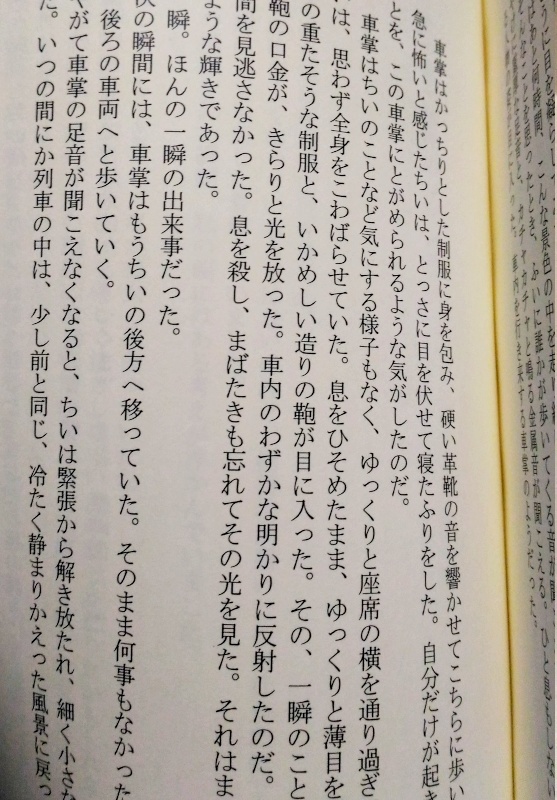 こんな景色の中を走
ふいに誰かが歩いてくる音が聞
カチャカチャと鳴る金属音が聞こえる。
車内を行き来する車掌のようだった。
車掌はかっちりとした制服に身を包み、硬い革靴の音を響かせてこちらに歩い
急に怖いと感じたちいは、とっさに目を伏せて寝たふりをした。自分だけが起き
とを、この車掌にとがめられるような気がしたのだ。
車掌はちいのことなど気にする様子もなく、ゆっくりと座席の横を通り過ぎ
は、思わず全身をこわばらせていた。息をひそめたまま、ゆっくりと薄目を
の重たそうな制服と、いかめしい造りの鞄が目に入った。その、一瞬のこと
鞄の口金が、きらりと光を放った。車内のわずかな明かりに反射したのだ。
間を見逃さなかった。息を殺し、まばたきも忘れてその光を見た。それはま
ような輝きであった。
瞬。ほんの一瞬の出来事だった。
の瞬間には、車掌はもうちいの後方へ移っていた。そのまま何事もなかった
後ろの車両へと歩いていく。
がて車掌の足音が聞こえなくなると、ちいは緊張から解き放たれ、細く小さな
た。いつの間にか列車の中は、少し前と同じ、冷たく静まりかえった風景に戻っ